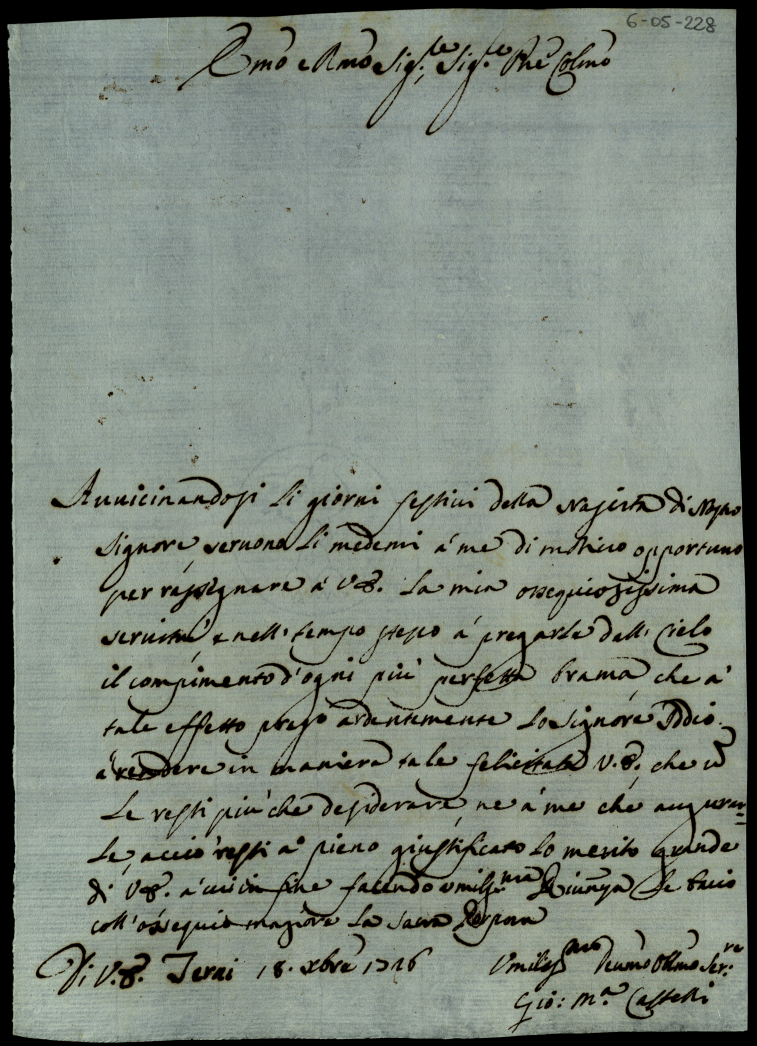 6-05-228
Emo e Rmo Sig.re Sig.re Pne Colmo
Auuicinandosi li giorni festiui della Nascita di Nostro
Signore seruono li medemi á me di motiuo opportuno
per rassegnare á V.E. la mia ossequiosissima
seruitù, e nell' tempo stesso á pregarle dall' Cielo
il compimento d'ogni più perfetta brama che á
tale effetto prego ardentemente lo Signore Iddio
á rendere in maniera tale felicitata V.E., che
le resti più che desiderare, ne á me che augurar=
le, acciò resti á pieno giustificato lo merito grande
di V.E. á cui in fine facendo umilissma le bacio
coll' ossequio magiore la Sacra Porpora
Di V.E. Terni 18. xbre 1726
Umilissmo Deumo Obmo Ser.re
Gio: Ma. Castelli